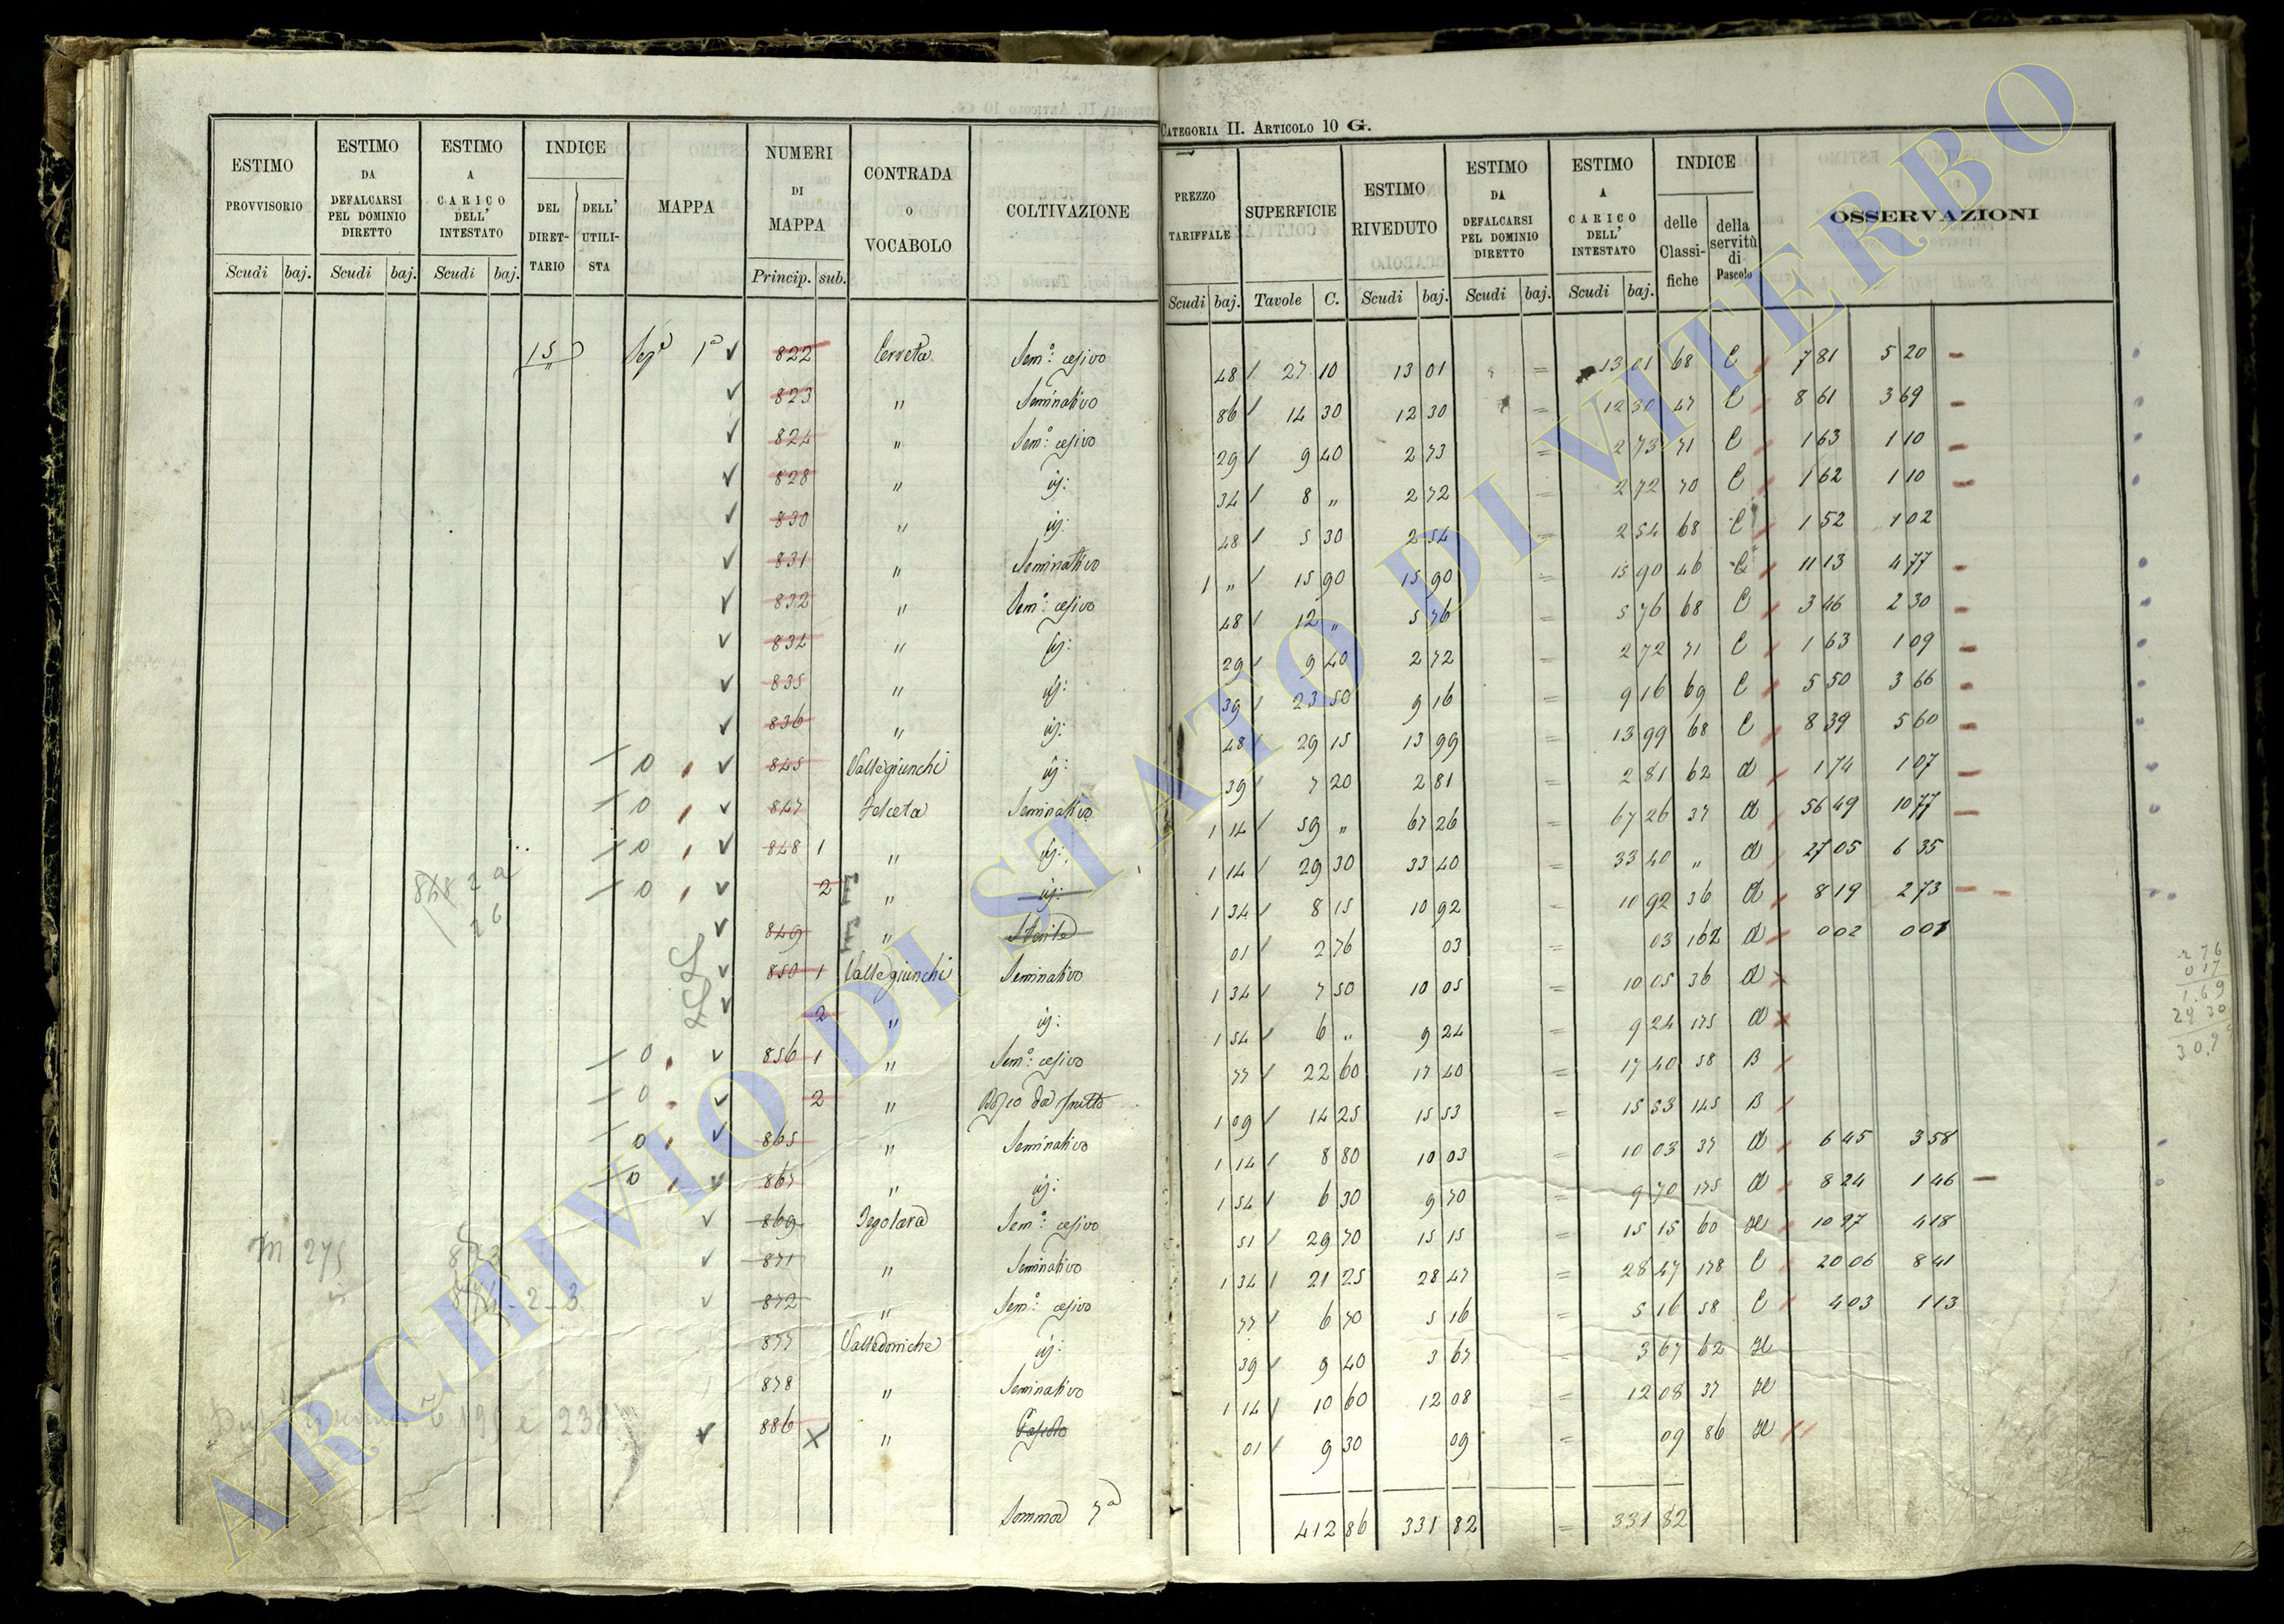 CATEGORIA II. ARTICOLO 10 G.
ESTIMO PROVVISORIO Scudi baj.
ESTIMO DA DEFALCARSI PEL DOMINIO DIRETTO Scudi baj.
ESTIMO A CARICO DELL' INTESTATO Scudi baj.
INDICE DEL DIRETTARIO DELL' UTILISTA
MAPPA
NUMERI DI MAPPA Princip. sub.
CONTRADA O VOCABOLO
COLTIVAZIONE
PREZZO TARIFFALE Scudi baj.
SUPERFICIE Tavole C.
ESTIMO RIVEDUTO Scudi baj.
ESTIMO DA DEFALCARSI PEL DOMINIO DIRETTO Scudi baj.
ESTIMO A CARICO DELL' INTESTATO Scudi baj.
INDICE delle Classifiche della servitù di Pascolo
OSSERVAZIONI
15 1ª 822 Cerreta Sem.º cesivo 48 27 10 13 01 = 13 01 68 C 7 81 5 20
823 " Seminativo 86 14 30 12 30 = 12 30 47 C 8 61 3 69
824 " Sem.º cesivo 29 9 40 2 73 = 2 73 71 C 1 63 1 10
828 " id: 34 8 " 2 72 = 2 72 70 C 1 62 1 10
830 " id: 48 5 30 2 54 = 2 54 68 C 1 52 1 02
831 " Seminativo 1 " 15 90 15 90 = 15 90 46 C 11 13 4 77
832 " Sem.º cesivo 48 12 " 5 76 = 5 76 68 C 3 46 2 30
834 " id: 29 9 40 2 72 = 2 72 71 C 1 63 1 09
835 " id: 39 23 50 9 16 = 9 16 69 C 5 50 3 66
836 " id: 48 29 15 13 99 = 13 99 68 C 8 39 5 60
0 845 Vallegiunchi id: 39 7 20 2 81 = 2 81 62 A 1 74 1 07
0 847 Felceta Seminativo 1 14 59 " 67 26 = 67 26 37 A 56 49 10 77
0 848 1 " id: 1 14 29 30 33 40 = 33 40 " A 27 05 6 35
848 2 a 0 2 " id: 1 34 8 15 10 92 = 10 92 36 A 8 19 2 73
2 b
849 " Sterile 01 2 76 03 = 03 162 A 0 02 0 01
850 1 Vallegiunchi Seminativo 1 34 7 50 10 05 = 10 05 36 A
2 " id: 1 54 6 " 9 24 = 9 24 175 A
0 856 1 " Sem.º cesivo 77 22 60 17 40 = 17 40 58 B
0 2 " Bosco da frutto 1 09 14 25 15 53 = 15 53 145 B
0 865 " Seminativo 1 14 8 80 10 03 = 10 03 37 A 6 45 3 58
0 867 " id: 1 54 6 30 9 70 = 9 70 175 A 8 24 1 46
869 Pegolara Sem.º cesivo 51 29 70 15 15 = 15 15 60 H 10 97 4 18
871 " Seminativo 1 34 21 25 28 47 = 28 47 178 C 20 06 8 41
872 " Sem.º cesivo 77 6 70 5 16 = 5 16 58 C 4 03 1 13
877 Valledoniche id: 39 9 40 3 67 = 3 67 62 H
878 " Seminativo 1 14 10 60 12 08 = 12 08 37 H
886 " Pascolo 01 9 30 09 = 09 86 H
Somma 7ª 412 86 331 82 = 331 82
ARCHIVIO DI STATO DI VITERBO